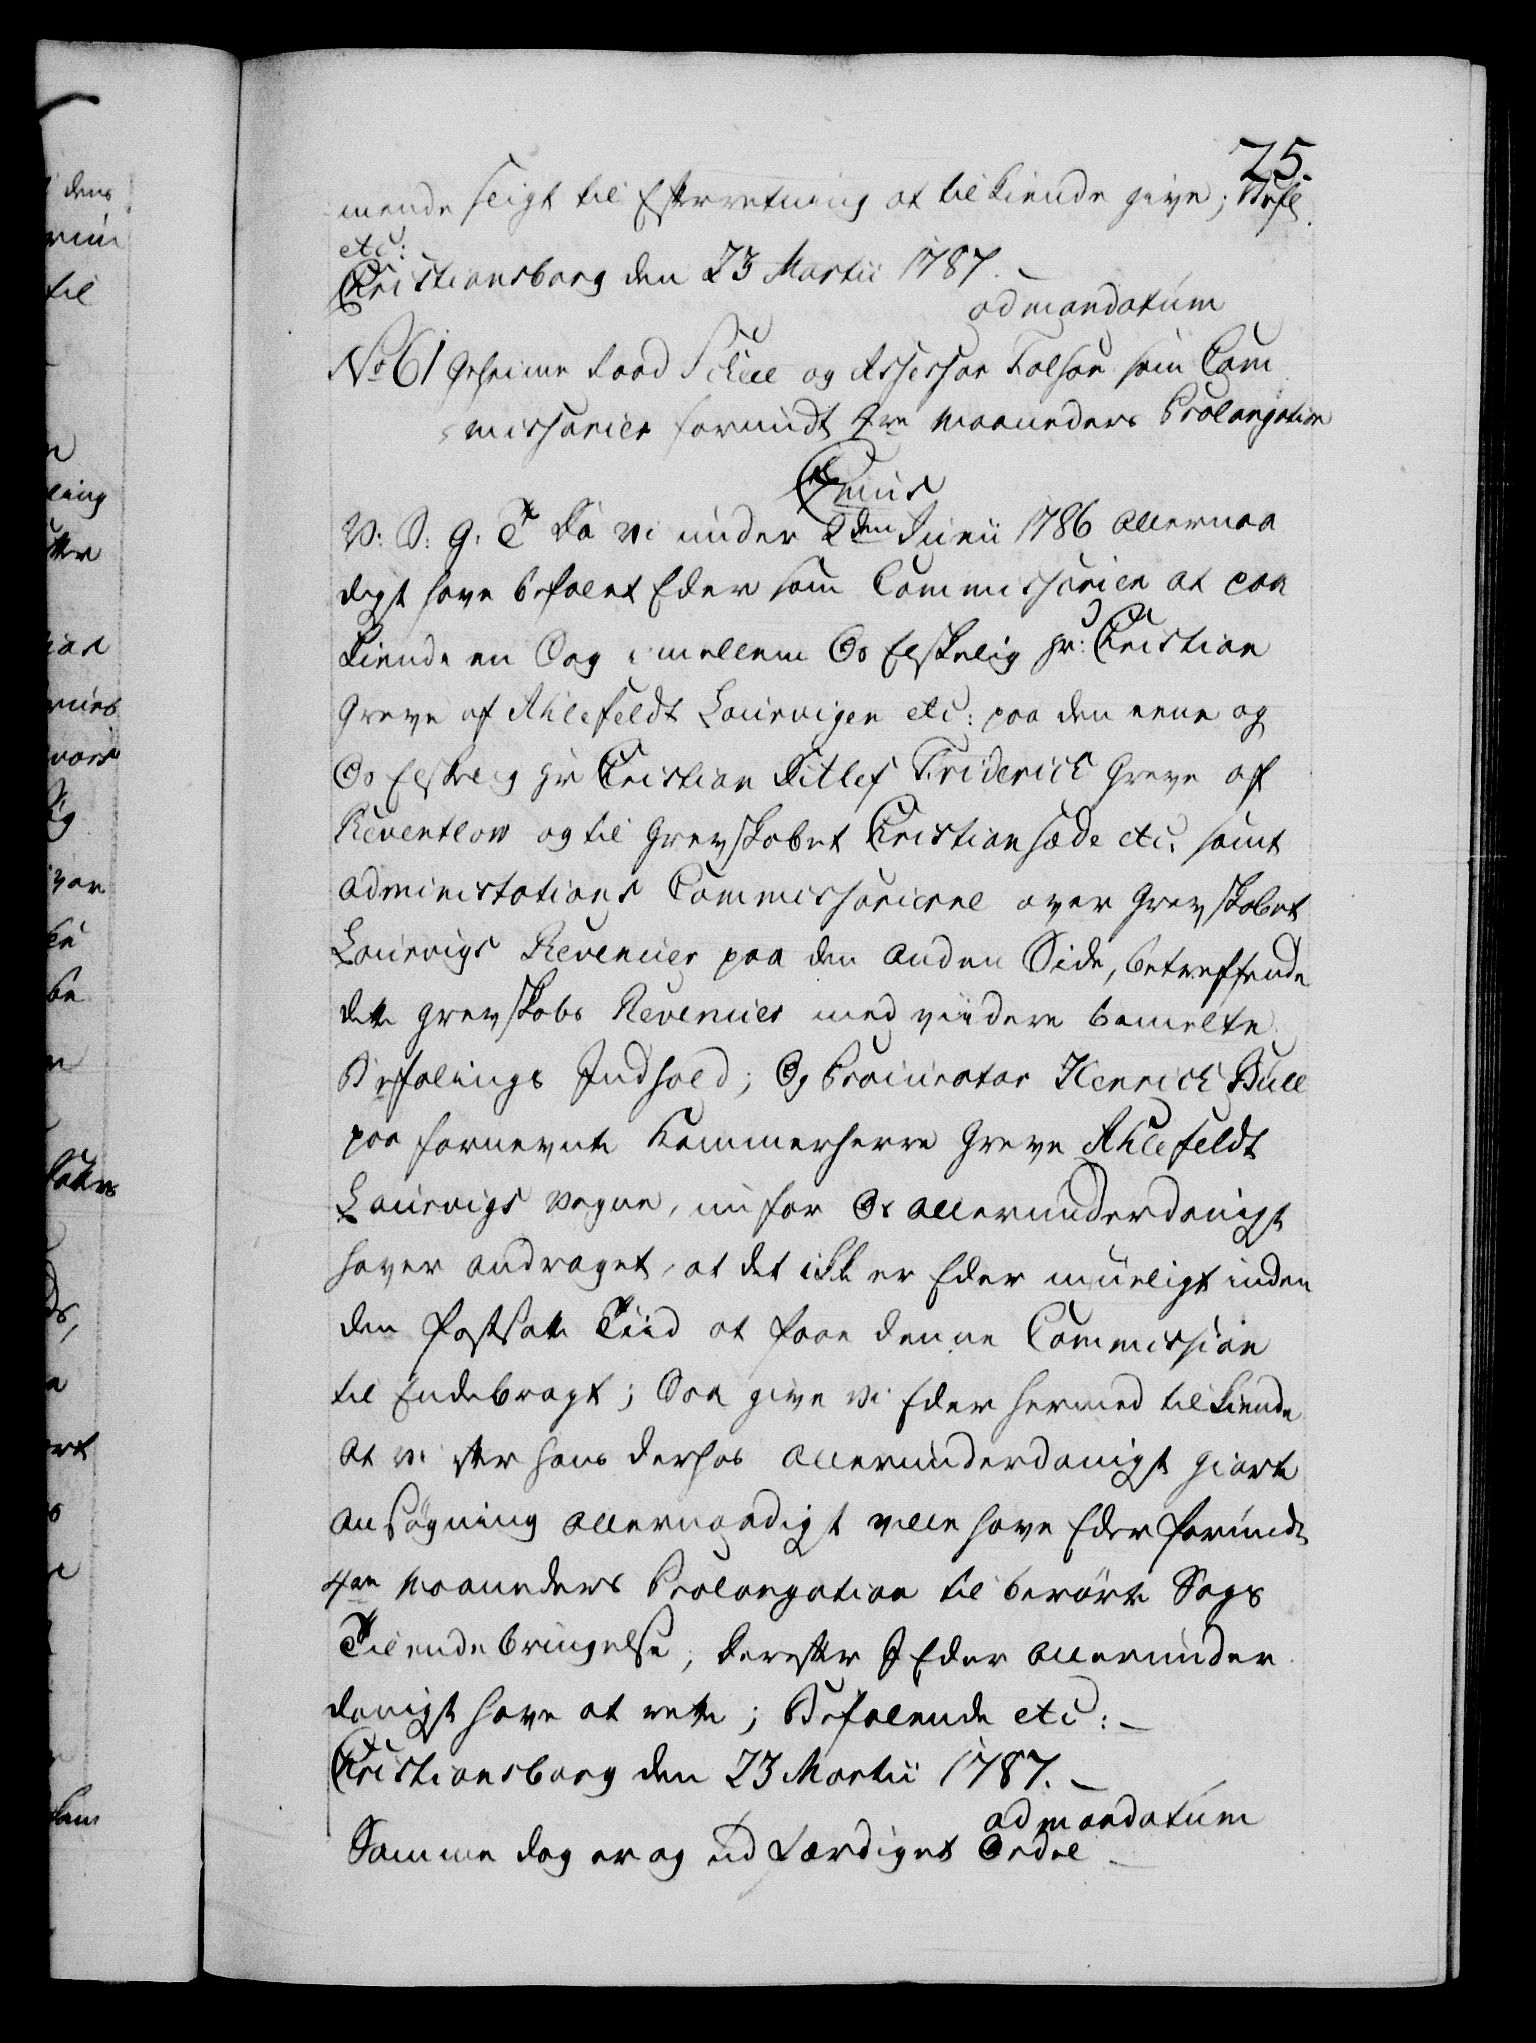 25.
mende heigt til Efterretning at tilkiende give; Befl
etc:
Christiansborg den 23 Martii 1787. –
ad mandatum
No 61 Geheime Raad Schee og Assessor Falsen som Com
missarier forundt 4re Maaneders Prolongation
Cunis
V: S: G: T Da Vi under 2den Junii 1786 allernaa
digst have befalet Eder som Commissarier at paa
kiende en Sag imellem Os Elskelig Hr: Christian
Greve af Ahlefeldt Laurvigen etc: paa den eene og
Os Elskelig Hr Christian Ditlef Friderich Greve af
Reventlow og til Grevskabet Christiansæde etc. samt
administrations Commissarierne over Grevskabet
Laurvigs Revenuer paa den anden Side, betreffende
dette Grevskabs Revenuer med viidere bemelte
Befalings Indhold; Og Procurator Henrich Bull
paa fornevnte Kammerherre Greve Ahlefeldt
Laurvigs vegne, nu for Os allerunderdanigst
haver andraget, at det ikke er Eder mueligt inden
den fastsatte Tiid at faae denne Commission
til Endebragt; Saa give Vi Eder hermed tilkiende
at vi efter hans derhos allerunderdanigst giorte
ansøgning allernaadigst ville have Eder forundt
4re Maaneders Prolongation til berørte Sags
Tilendebringelse, derefter I Eder allerunder
danigst have at rette; Befalende etc: –
Christiansborg den 23 Martii 1787. –
ad mandatum
Samme dag er og udfærdiget Ordre –
dens
til
ling